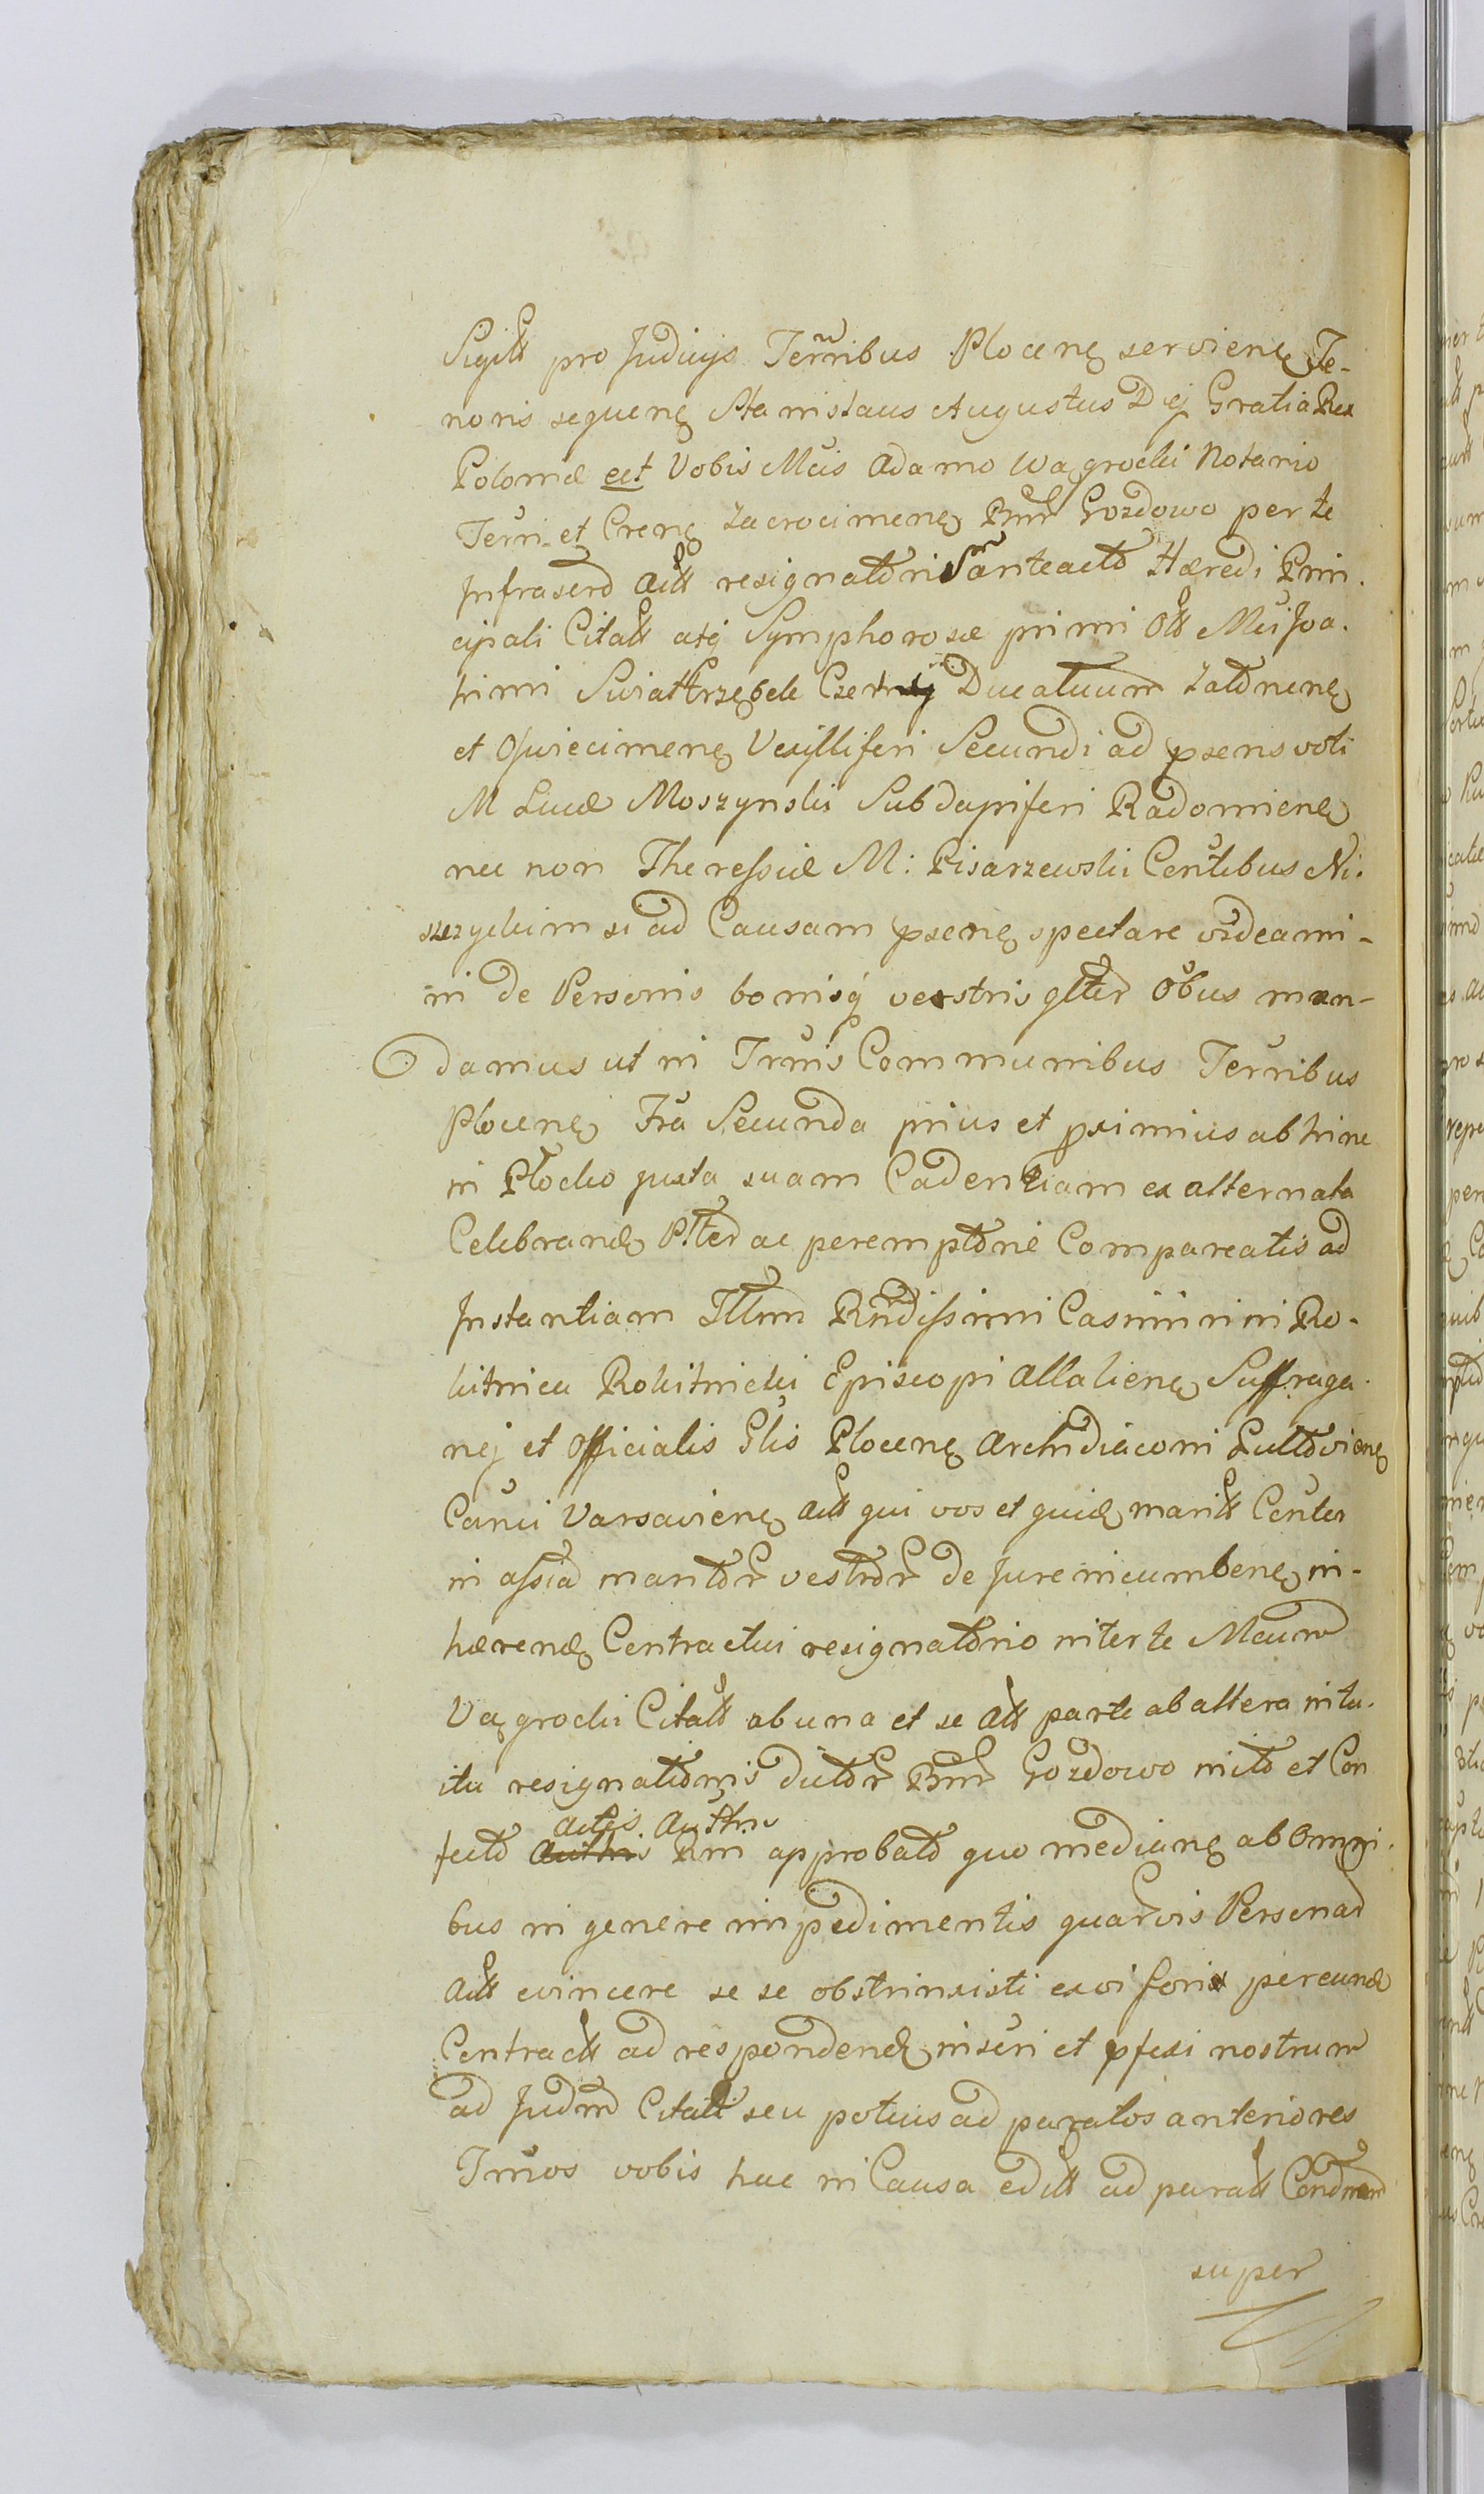 Sigill pro Judicijs Terribus Plocens serviens Te-
noris sequens Stanislaus Augustus Dej Gratia Rex
Poloniæ ect Vobis Mcis Adamo Wagrocki Notario
Terri et Crens Zacrocimens Bnor Gozdowo per te
Infrascrō Act resignatōri anteactō Hæredi Prin.
cipali Citatt atq Symphorosæ primi Ott Mci Joa.
himi Swiattrzębck Czerny Ducatuum Zatōrnens
et Oswiecimens Vexylliferi Secundi ad psens voti
M Lucæ Moszynski Subdapiferi Radomiens
nec non Theressiæ M: Pisarzewski Cōntibus Ni.
szczyckim si ad Causam psens spectare videami-
ni de Personis bonisq verstris gltēr Obus man-
damus ut in Trnis Communibus Terribus
Plocens Fra Secunda prius et proximius ab hinc
in Plocko juxta suam Cadentiam ex alternata
Celebrand Pltēr ac peremptōrie Compareatis ad
Instantiam Illmi Rndissimi Casimiri in Ro-
kitnica Rokitnicki Episcopi Allaliens Suffraga.
nej et Officialis Glis Plocens Archidiaconi Pultōviens
Canci Varsaviens Act qui vos et quid maritt Cōnter
in assiā maritōr vestrōr de Jure incumbens in-
hærend Contractui resignatōrio inter te Mcum
Vągrocki Citatt ab una et se Att parte ab altera intu-
itu resignatiōnis dictōr Bnor Gozdowo initō et Con
actis Autthn
fectō Autthis Rni approbatō quo mediang ab Omni.
bus in genere impedimentis quarvis Personar
Act evincere se se obstrinxisti ex vi foris percund
Contractt ad respondend inseri et pfixi nostrum
ad Judm Citatt seu potius ad paratos anteriores
Trnos vobis hac in Causa editt ad paratt Condmnd
super